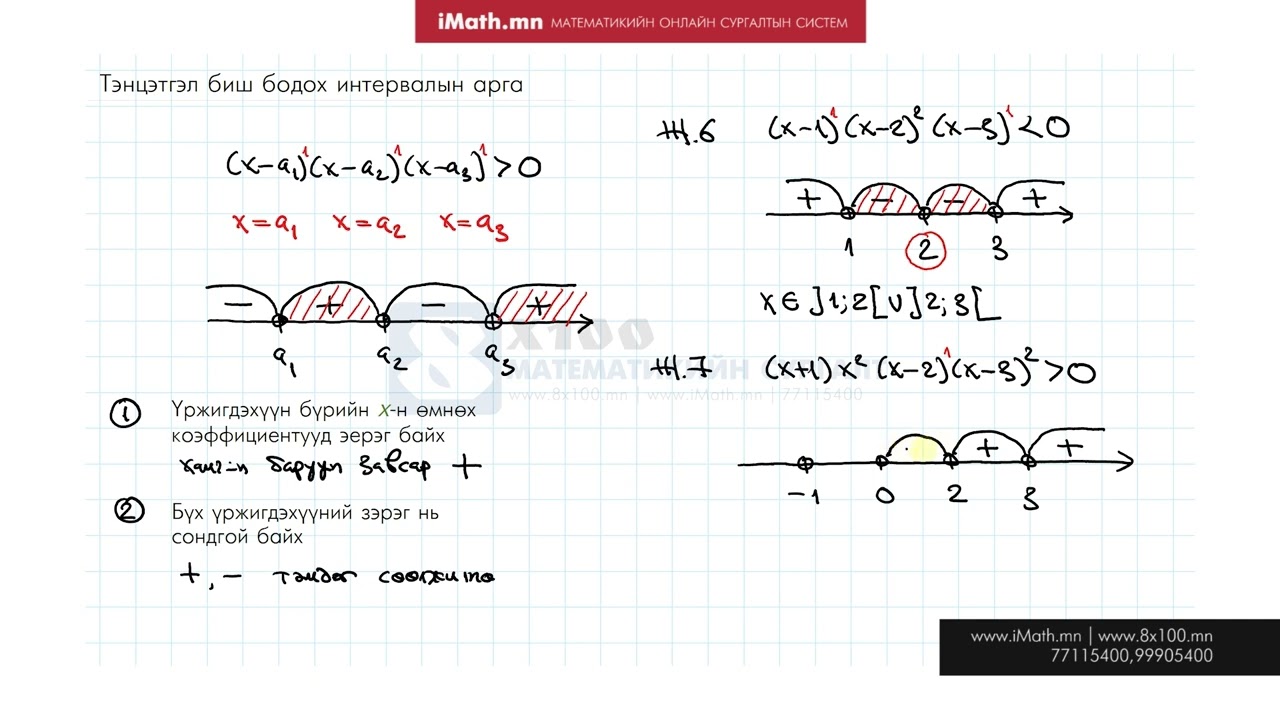 iMath.mn МАТЕМАТИКИЙН ОНЛАЙН СУРГАЛТЫН СИСТЕМ
Тэнцэтгэл биш бодох интервалын арга
(x-a₁)¹(x-a₂)¹(x-a₃)¹>0
x=a₁ x=a₂ x=a₃
- + - +
a₁ a₂ a₃
① Үржигдэхүүн бүрийн x-н өмнөх
коэффициентууд эерэг байх
баруун завсар +
② Бүх үржигдэхүүний зэрэг нь
сондгой байх
+, - тэмдэг
Ж.6 (x-1)¹(x-2)²(x-3)¹<0
+ - - +
1 2 3
x∈]1;2[∪]2;3[
Ж.7 (x+1)x²(x-2)¹(x-3)²>0
+ +
-1 0 2 3
x100
МАТЕМАТИКИЙН
www.8x100.mn | www.iMath.mn | 77115400
www.iMath.mn | www.8x100.mn
77115400,99905400